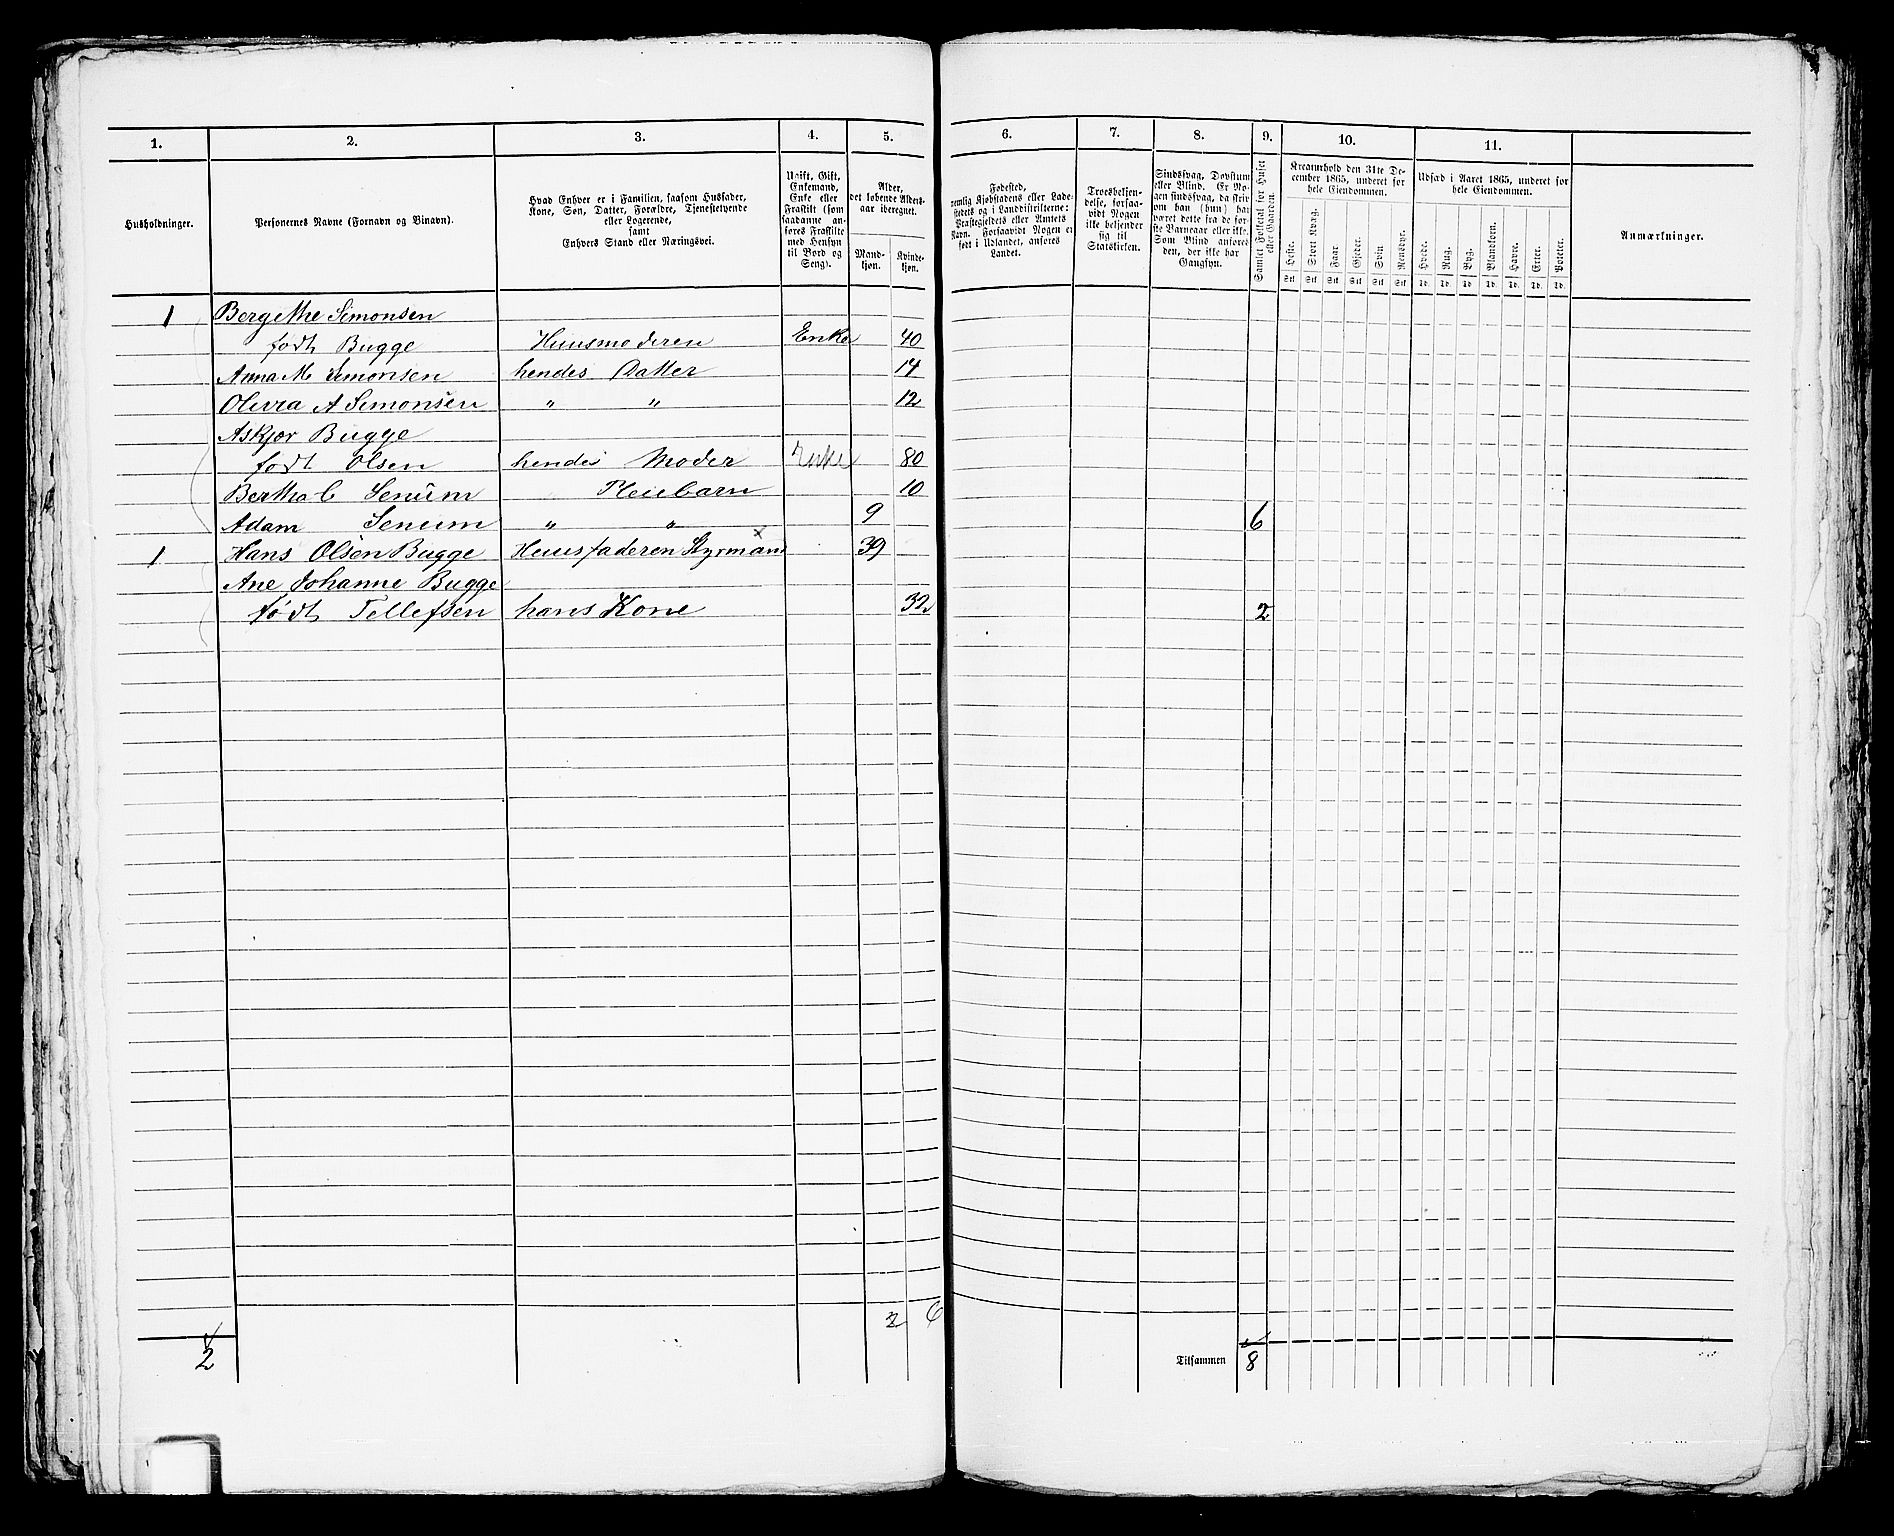 1. 2. 3. 4. 5. 6. 7. 8. 9. 10. 11.
Husholdninger.
Personernes Navne (Fornavn og Binavn).
Hvad Enhver er i Familien, saasom Husfader,
Kone, Søn, Datter, Forældre, Tjenestetyende
eller Logerende,
samt
Enhvers Stand eller Næringsvei.
Ugift, Gift,
Enkemand,
Enke eller
Fraskilt (som
saadanne an-
føres Fraskilte
med Hensyn
til Bord og
Seng).
Alder,
det løbende Alders-
aar iberegnet.
Mand-
kjøn.
Kvinde-
kjøn.
Fødested,
nemlig Kjøbstadens eller Lade-
stedets og i Landdistrikterne:
Præstegjeldets eller Amtets
Navn. Forsaavidt Nogen er
født i Udlandet, anføres
Landet.
Troesbekjen-
delse, forsaa-
vidt Nogen
ikke bekjender
sig til
Statskirken.
Sindssvag, Døvstum
eller Blind. Er No-
gen sindssvag, da skriv
om han (hun) har
været dette fra de før-
ste Barneaar eller ikke.
Som Blind anføres
den, der ikke har
Gangsyn.
Samlet Folketal for Huset
eller Gaarden.
Kreaturhold den 31te De-
cember 1865, underet for
hele Eiendommen.
Heste.
Stort Kvæg.
Faar
Gjeder.
Svin
Rensdyr.
Stk Stk Stk Stk Stk Stk
Udsæd i Aaret 1865, underet for
hele Eiendommen.
Hvede.
Rug.
Byg.
Blandkorn.
Havre.
Erter.
Poteter.
Td. Td. Td. Td. Td. Td. Td.
Anmærkninger.
1 Bergethe Simonsen
født Bugge Huusmoderen Enke 40
Anna M Simonsen hendes Datter 14
Olivia A Simonsen " " 12
Askjær Bugge
født Olsen hendes Moder Enke 80
Bertha C Senum Pleiebarn 10
Adam Senum " " 9 6
1 Hans Olsen Bugge Huusfaderen Styrmand 39
Ane Johanne Bugge
født Tellefsen hans Kone 32 2
2 6
2 Tilsammen 8